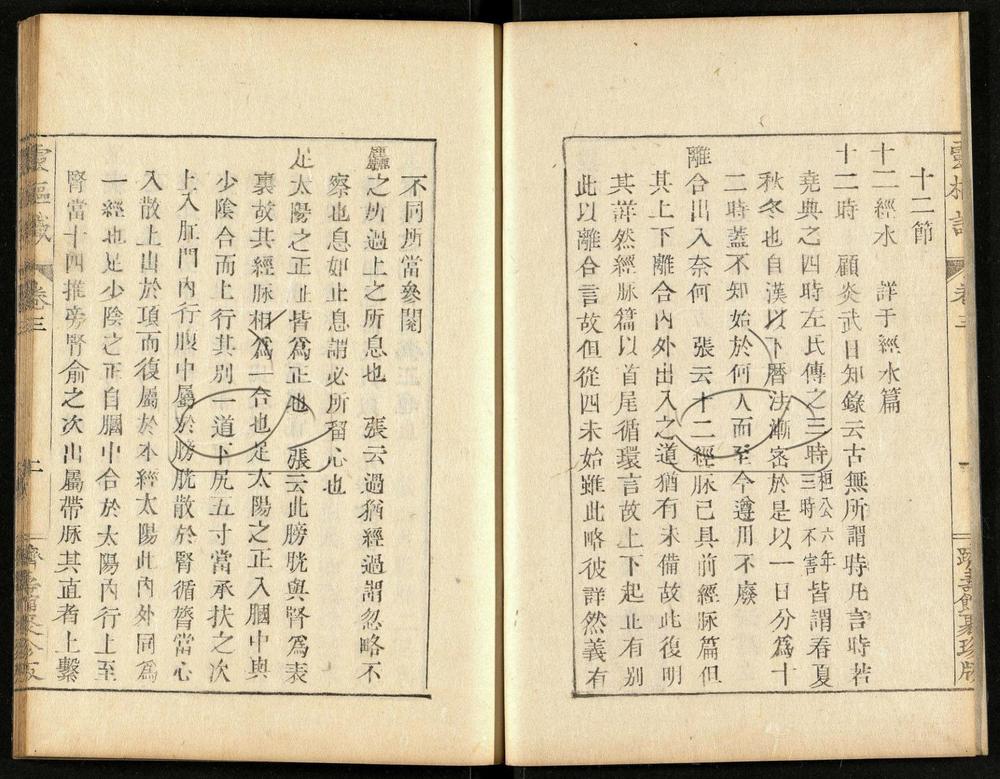 十二節
十二經水　詳于經水篇
十二時　顧炎武日知錄云古無所謂時凡言時若
堯典之四時左氏傳之三時桓公六年三時不害皆謂春夏
秋冬也自漢以下曆法漸密於是以一日分爲十
二時蓋不知始於何人而至今遵用不廢
離合出入奈何　張云十二經脉已具前經脉篇但
其上下離合內外出入之道猶有未備故此復明
其詳然經脉篇以首尾循環言故上下起止有别
此以離合言故但從四末始雖此略彼詳然義有
不同所當參閱
麤之所過上之所息也　張云過猶經過謂忽略不
察也息如止息謂必所留心也
足太陽之正止皆爲正也　張云此膀胱與腎爲表
裏故其經脉相爲一合也足太陽之正入膕中與
少陰合而上行其别一道下尻五寸當承扶之次
上入肛門內行腹中屬於膀胱散於腎循膂當心
入散上出於項而復屬於本經太陽此內外同爲
一經也足少陰之正自膕中合於太陽內行上至
腎當十四椎旁腎俞之次出屬帶脉其直者上繫
靈樞識
卷三